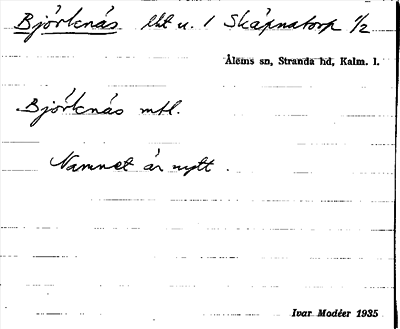 Björknäs lht u. 1 Skäpnatorp 1/2
Ålems sn, Stranda hd, Kalm. l.
Björknäs mtl.
Namnet är nytt.
Ivar Modéer 1935